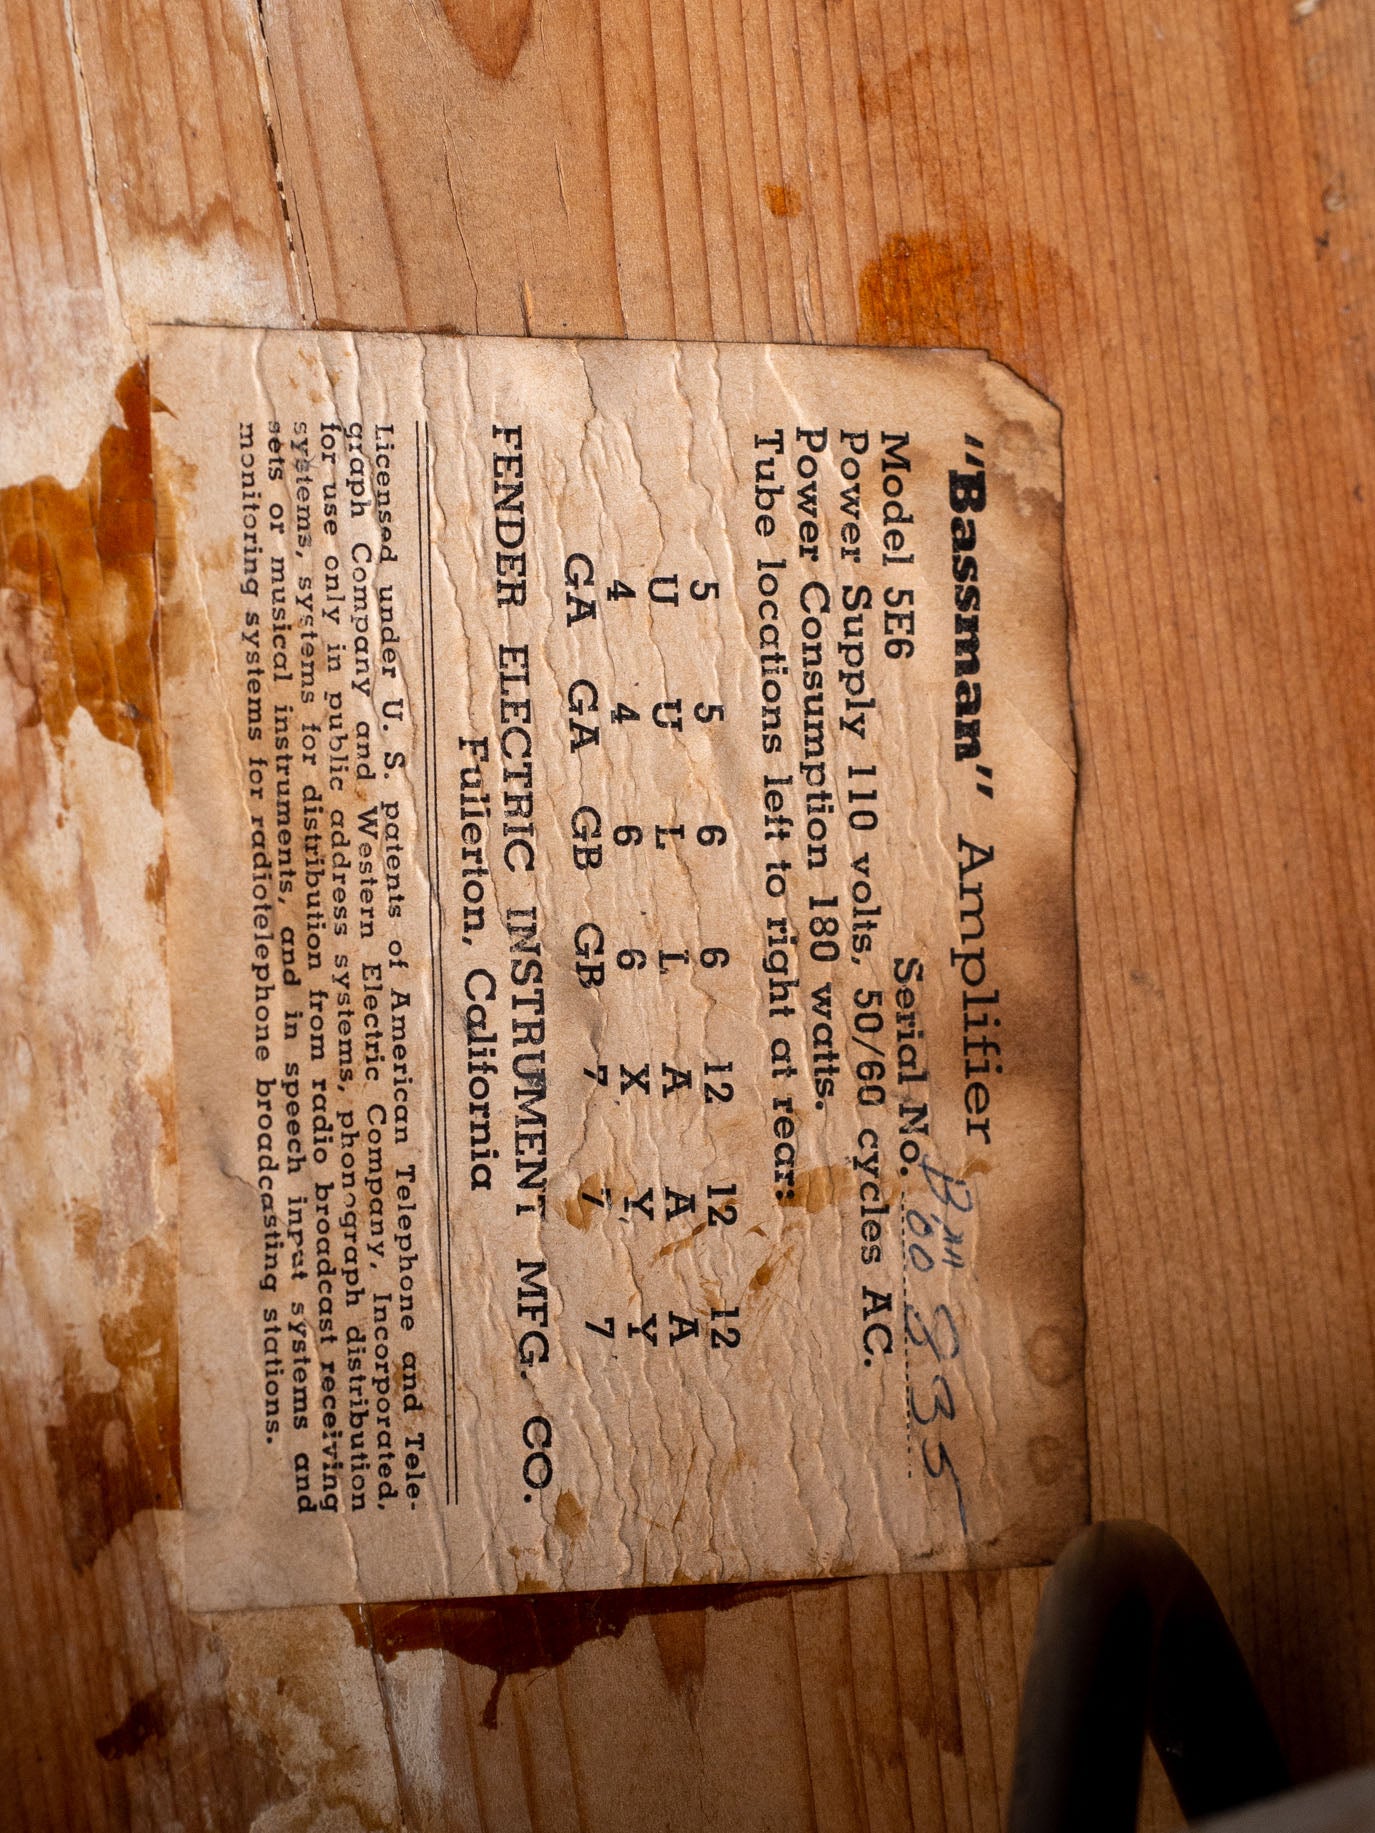 "Bassman" Amplifier
Model 5E6 Serial No. BM 00835
Power Supply 110 volts, 50/60 cycles AC.
Power Consumption 180 watts.
Tube locations left to right at rear:
5 5 6 6 12 12 12
U U L L A A A
4 4 6 6 X Y Y
GA GA GB GB 7 7 7
FENDER ELECTRIC INSTRUMENT MFG. CO.
Fullerton, California
Licensed under U. S. patents of American Telephone and Tele-
graph Company and Western Electric Company, Incorporated,
for use only in public address systems, phonograph distribution
systems, systems for distribution from radio broadcast receiving
sets or musical instruments, and in speech input systems and
monitoring systems for radiotelephone broadcasting stations.